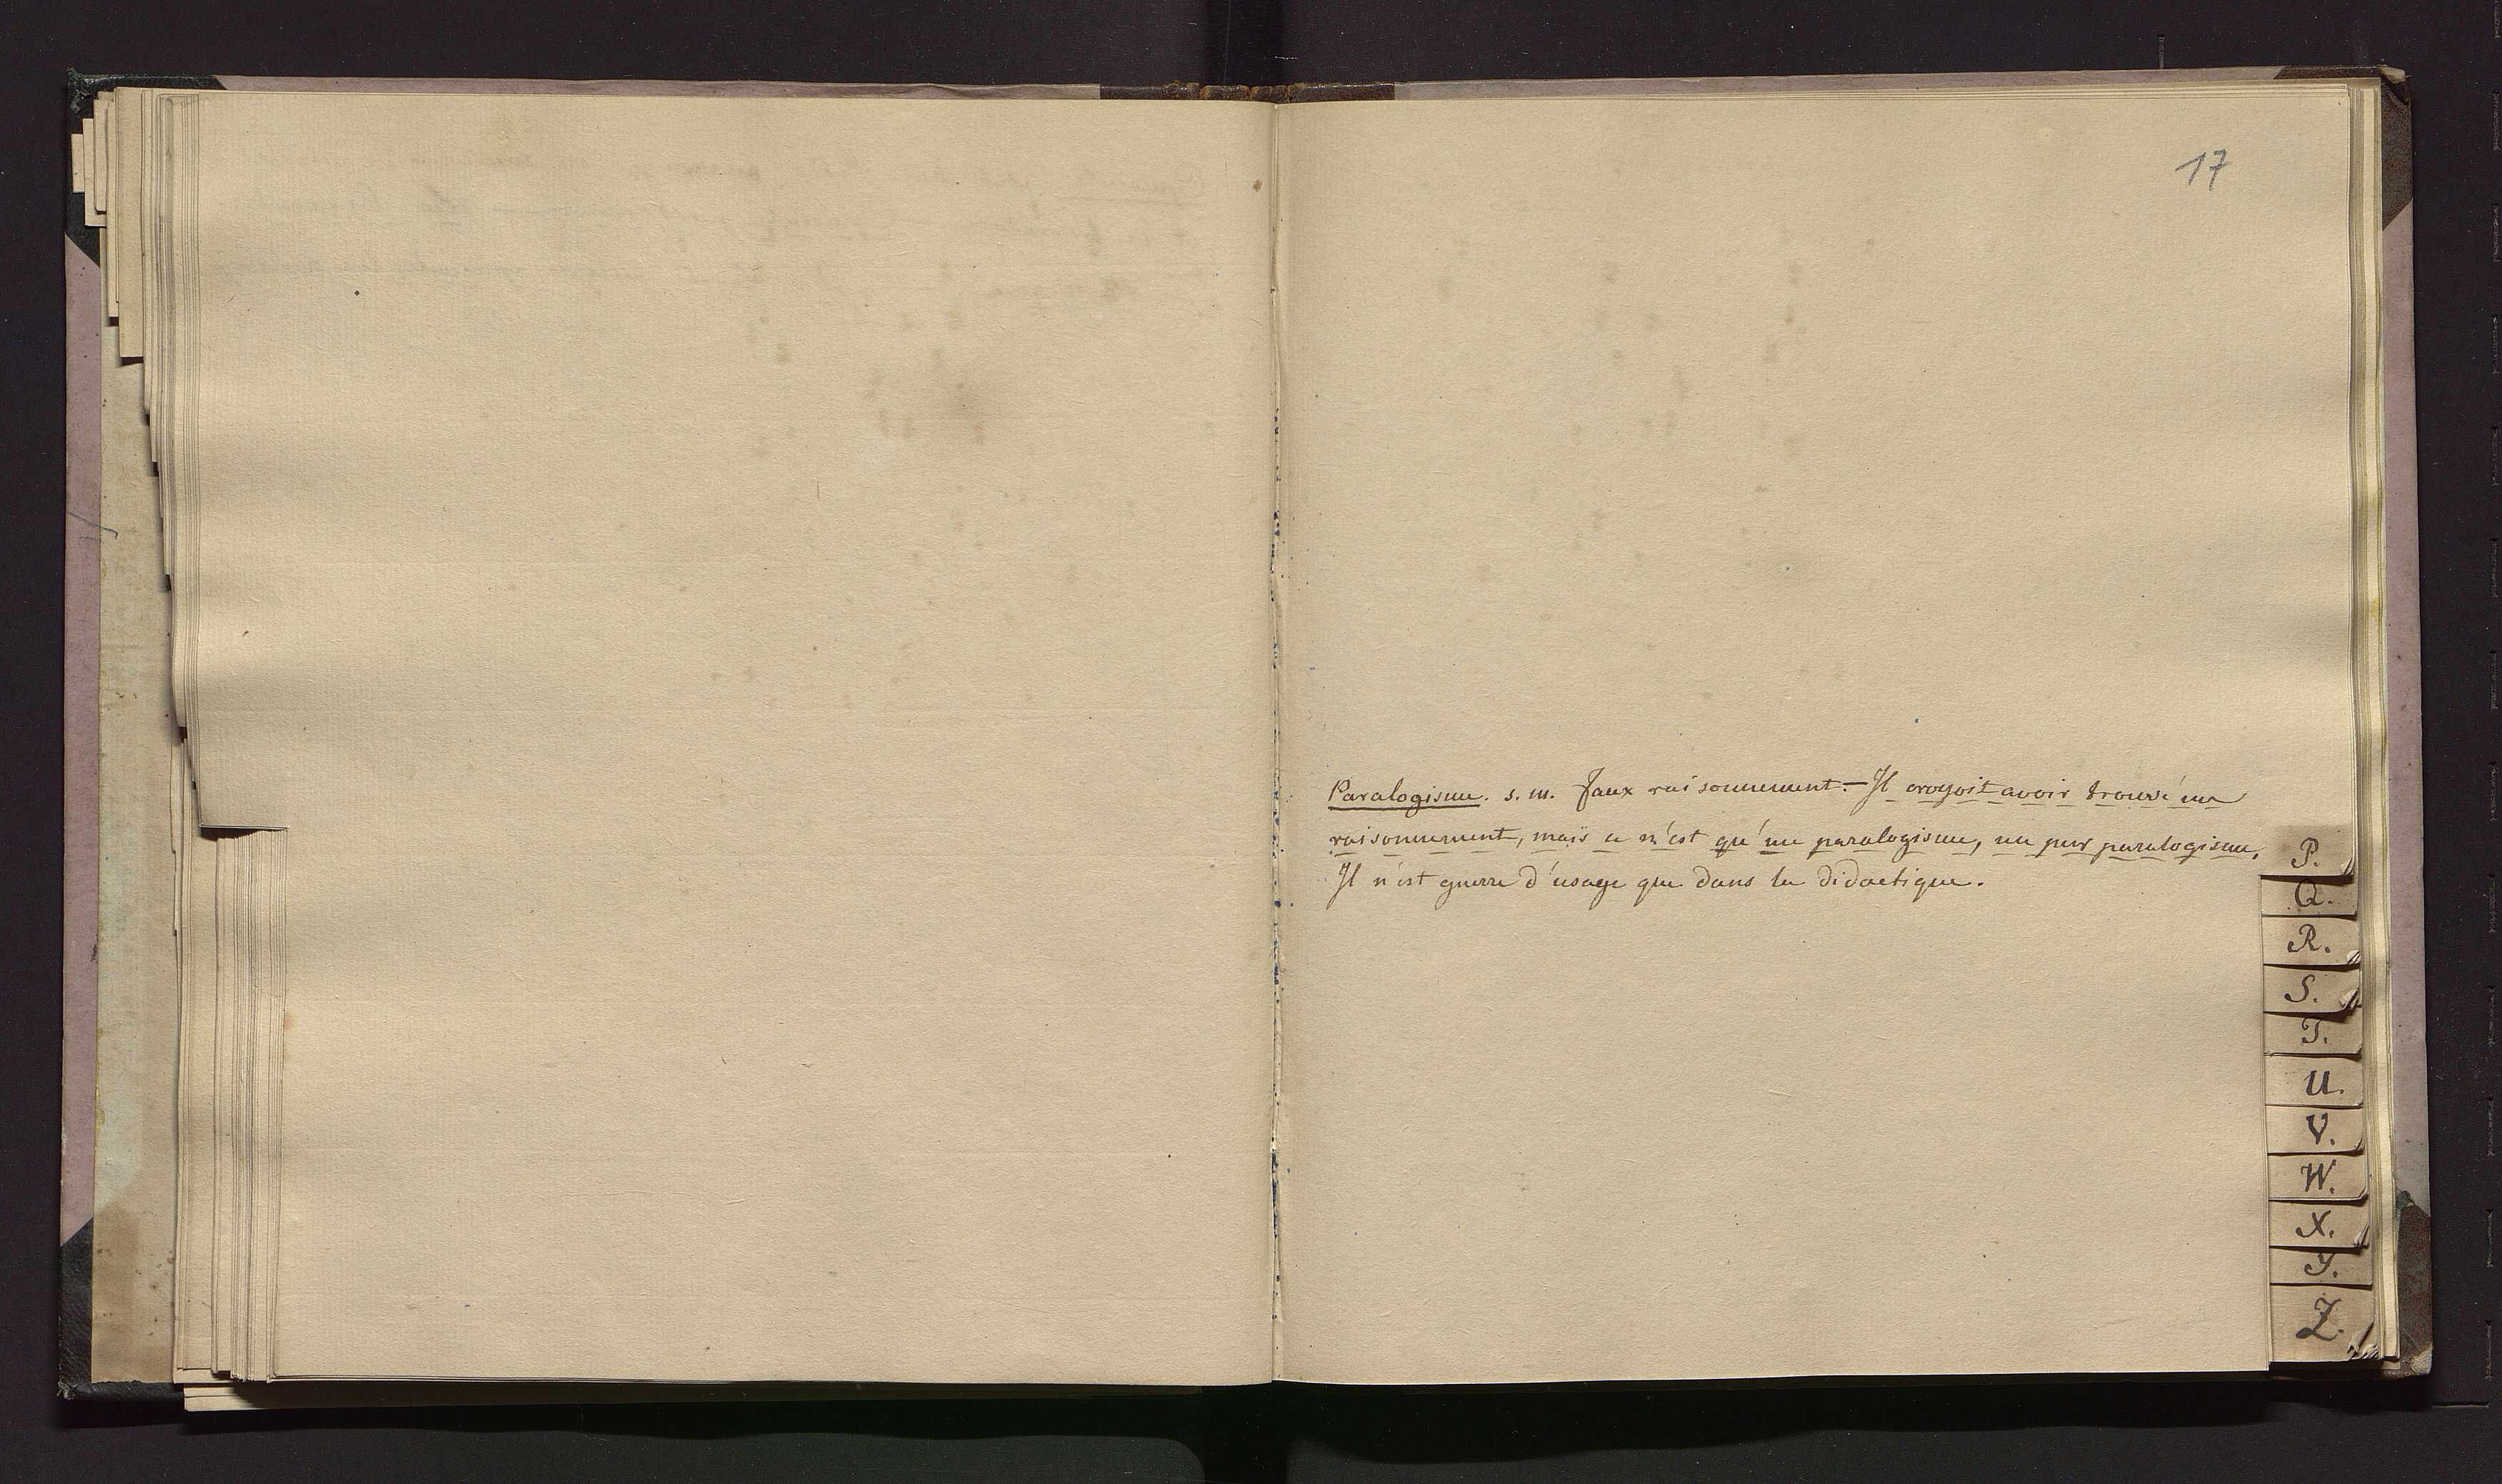 17
Paralogisme. s. m. Faux raisonnement. – Il croyoit avoir trouvé un
raisonnement, mais ce n'est qu'un paralogisme, un pur paralogisme.
Il n'est guerre d'usage que dans le didactique.
P.
Q.
R.
S.
T.
U.
V.
W.
X.
Y.
Z.